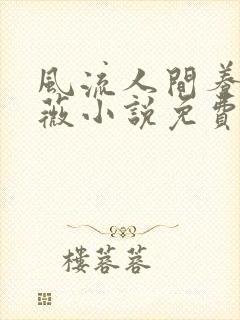 風流人間養
薇小說免費
樓蓉蓉